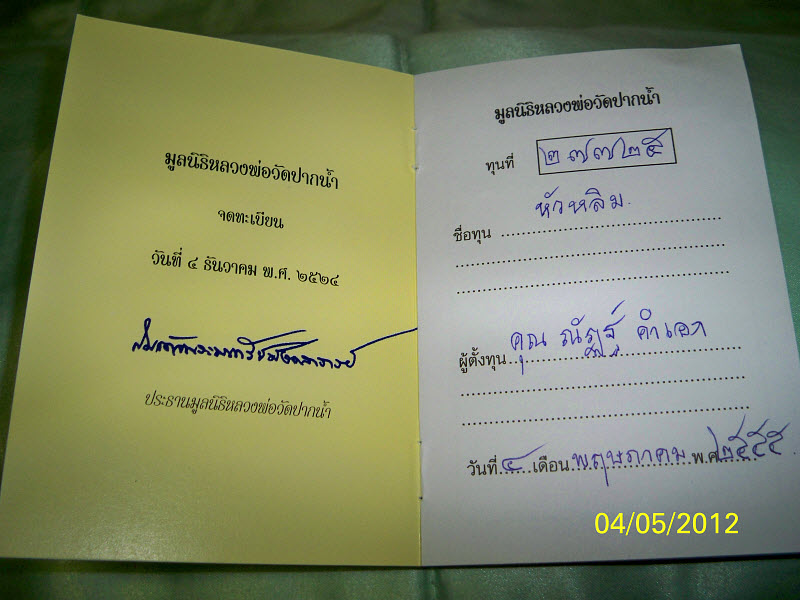 มูลนิธิหลวงพ่อวัดปากน้ำ
จดทะเบียน
วันที่ ๔ ธันวาคม พ.ศ. ๒๕๒๔
ประธานมูลนิธิหลวงพ่อวัดปากน้ำ
มูลนิธิหลวงพ่อวัดปากน้ำ
ทุนที่ ๒๗๗๒๕
ชื่อทุน หัวหลิม
ผู้ตั้งทุน คุณ ณัฏฐ์ คำเอก
วันที่ ๔ เดือน พฤษภาคม พ.ศ. ๒๕๕๕
04/05/2012